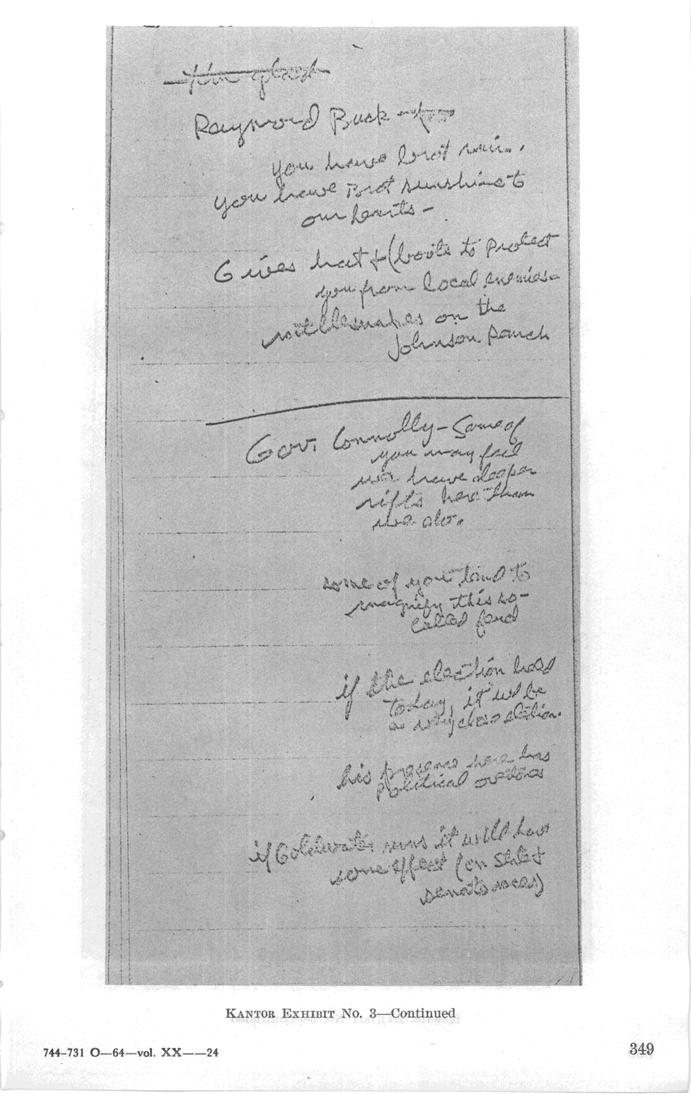 Raymond Buck
you have brot rain.
you have brot sunshine to
our hearts –
Gives hat + (boots to protect
you from local enemies –
rattlesnakes on the
Johnson Ranch
Gov. Connolly – Some of
you may feel
we have deeper
rifts here than
we do.
some of you tend to
magnify this so-
called feud
if the election held
today, it wd be
a very close election.
his presence here has
political overtones
if Goldwater runs it will have
some effect (on State +
senate races)
KANTOR EXHIBIT No. 3—Continued
744-731 O—64—vol. XX——24
349